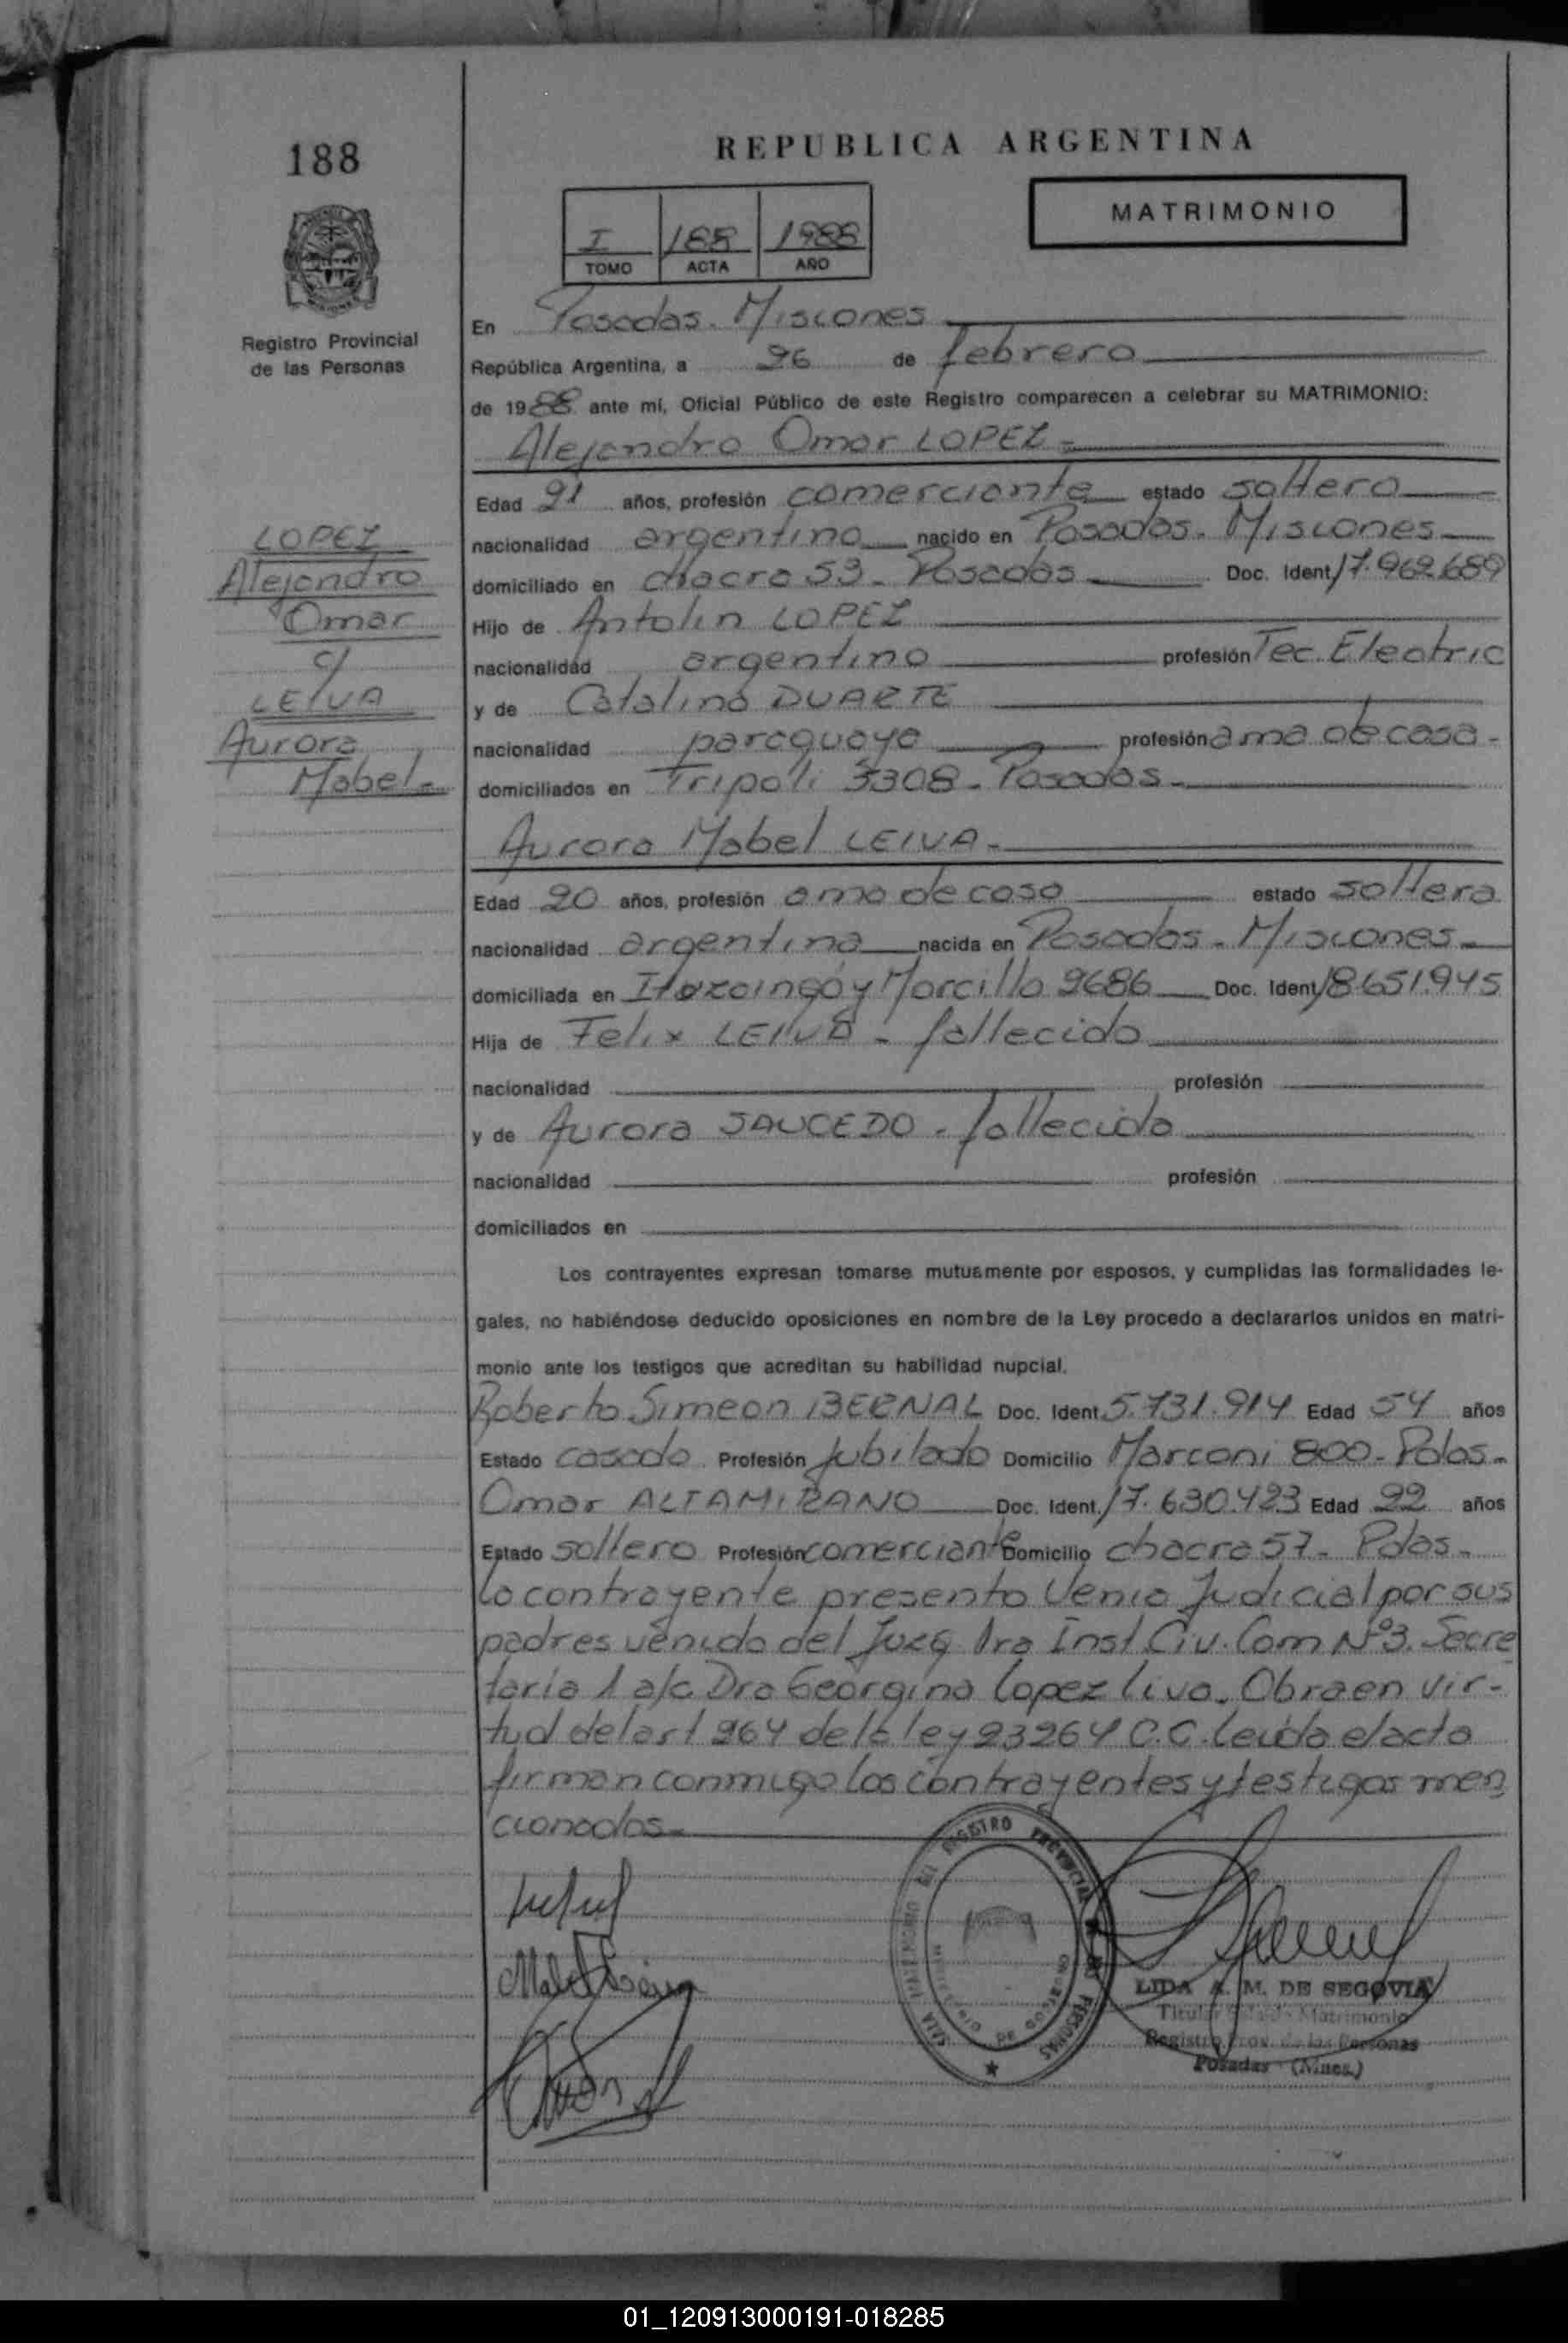 188
REPUBLICA ARGENTINA
MATRIMONIO
I 188 1988
TOMO ACTA AÑO
Registro Provincial
de las Personas
En Posadas. Misiones
República Argentina, a 26 de febrero
de 1988 ante mí, Oficial Público de este Registro comparecen a celebrar su MATRIMONIO:
Alejandro Omar LOPEZ
Edad 21 años, profesión comerciante estado soltero
nacionalidad argentino nacido en Posadas. Misiones
domiciliado en chacra 53 - Posadas Doc. Ident. 17.962.689
Hijo de Antolin LOPEZ
nacionalidad argentino profesión Tec. Electric
y de Catalina DUARTE
nacionalidad paraguaya profesión ama de casa -
domiciliados en Tripoli 3308 - Posadas -
LOPEZ
Alejandro
Omar
c/
LEIVA
Aurora
Mabel -
Aurora Mabel LEIVA -
Edad 20 años, profesión ama de casa estado soltera
nacionalidad argentina nacida en Posadas - Misiones -
domiciliada en Ituzaingó y Marcilla 2686 Doc. Ident. 18.651.945
Hija de Felix LEIVA - fallecido
nacionalidad profesión
y de Aurora SAUCEDO - fallecida
nacionalidad profesión
domiciliados en
Los contrayentes expresan tomarse mutuamente por esposos, y cumplidas las formalidades le-
gales, no habiéndose deducido oposiciones en nombre de la Ley procedo a declararlos unidos en matri-
monio ante los testigos que acreditan su habilidad nupcial.
Roberto Simeon BERNAL Doc. Ident. 5.731.914 Edad 54 años
Estado casado Profesión Jubilado Domicilio Marconi 800 - Pdas -
Omar ALTAMIRANO Doc. Ident. 17.630.423 Edad 22 años
Estado soltero Profesión comerciante Domicilio chacra 57 - Pdas -
La contrayente presento Venia Judicial por sus
padres venida del Juzg 1ra Inst. Civ. Com Nº3. Secre
taria 1 a/c Dra Georgina Lopez Liva. Obra en vir-
tud del art 264 de la ley 23264 C.C. Leida el acta
firman conmigo los contrayentes y testigos men
cionados -
REGISTRO PROVINCIAL DE LAS PERSONAS
MINISTERIO DE GOBIERNO
LIDA A. M. DE SEGOVIA
Titular Sala de Matrimonio
Registro Prov. de las Personas
Posadas (Mnes.)
01_120913000191-018285